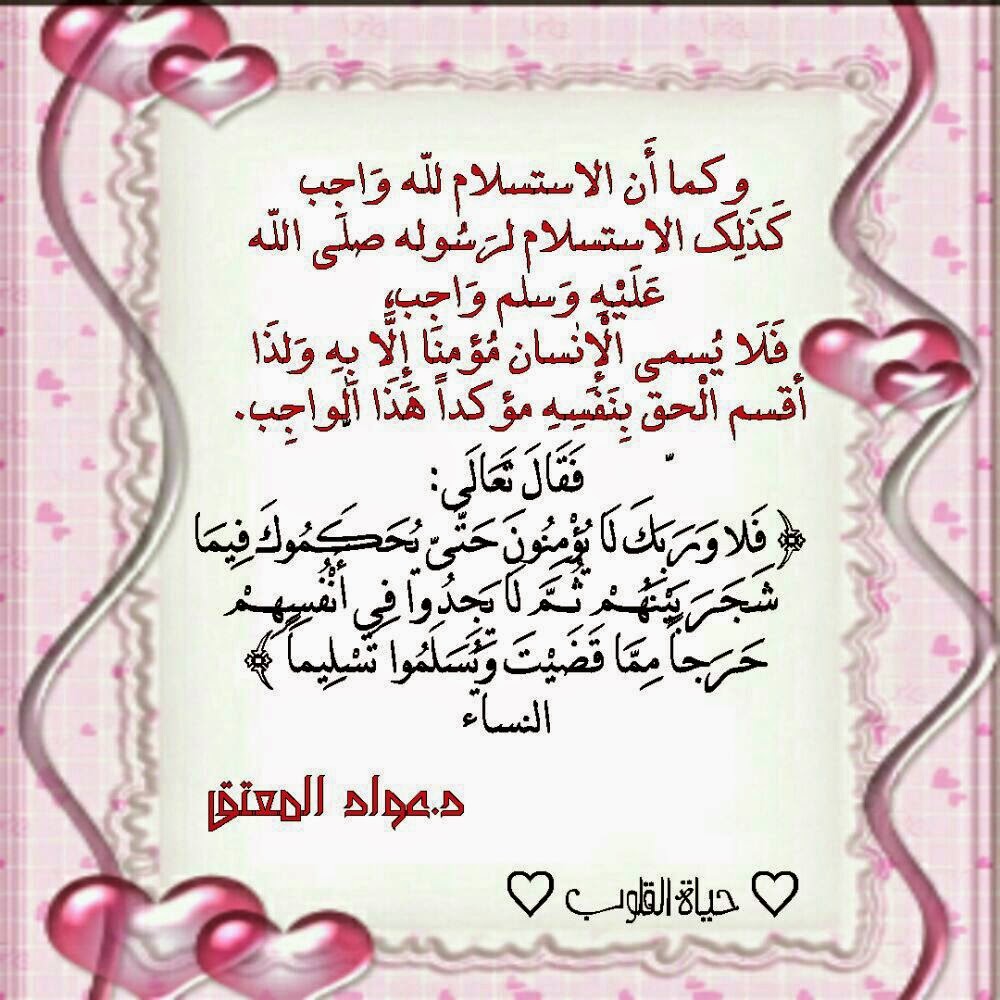 وكما أَن الاستسلام للّه وَاجِب
كَذَلِكَ الاستسلام لرَسُوله صلَى اللّه
عَلَيْهِ وَسلم وَاجِب،
فَلَا يُسمى الْإِنْسان مُؤمنَا إِلَّا بِهِ وَلذَا
أقسم الْحق بِنَفسِهِ مؤكداً هَذَا الْواجِب.
فَقَالَ تَعَالَى:
﴿ فَلا وَرَبِكَ لَا يُؤْمِنُونَ حَتَّىّ يُحَكِمُوكَ فِيمَا
شَجَرَ بَيْنَهُمْ ثُمَّ لَا يَجِدُوا فِي أَنْفُسِهِمْ
حَرَجاً مِمَّا قَضَيْتَ وَيُسَلِمُوا تَسْلِيماً ﴾
النساء
د.عواد المعتق
♡ حياة القلوب ♡